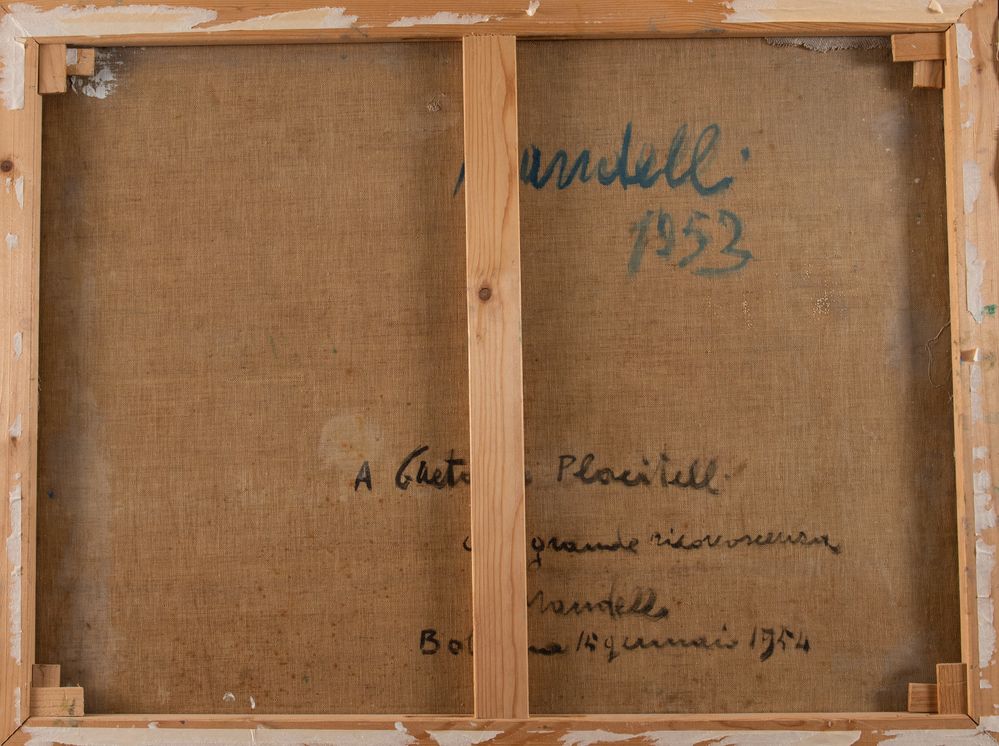 andell.
1953
A Gaet Placitell.
grande riconoscenza
andelli
Bol na 15 gennaio 1954